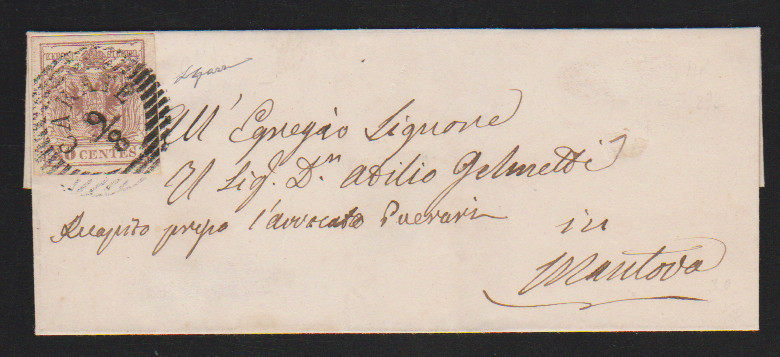 CANNETO
9/8
CENTES
All' Egregio Signore
Il Sig. D.r Attilio Gelmetti
Recapito presso l'avvocato
in
Mantova